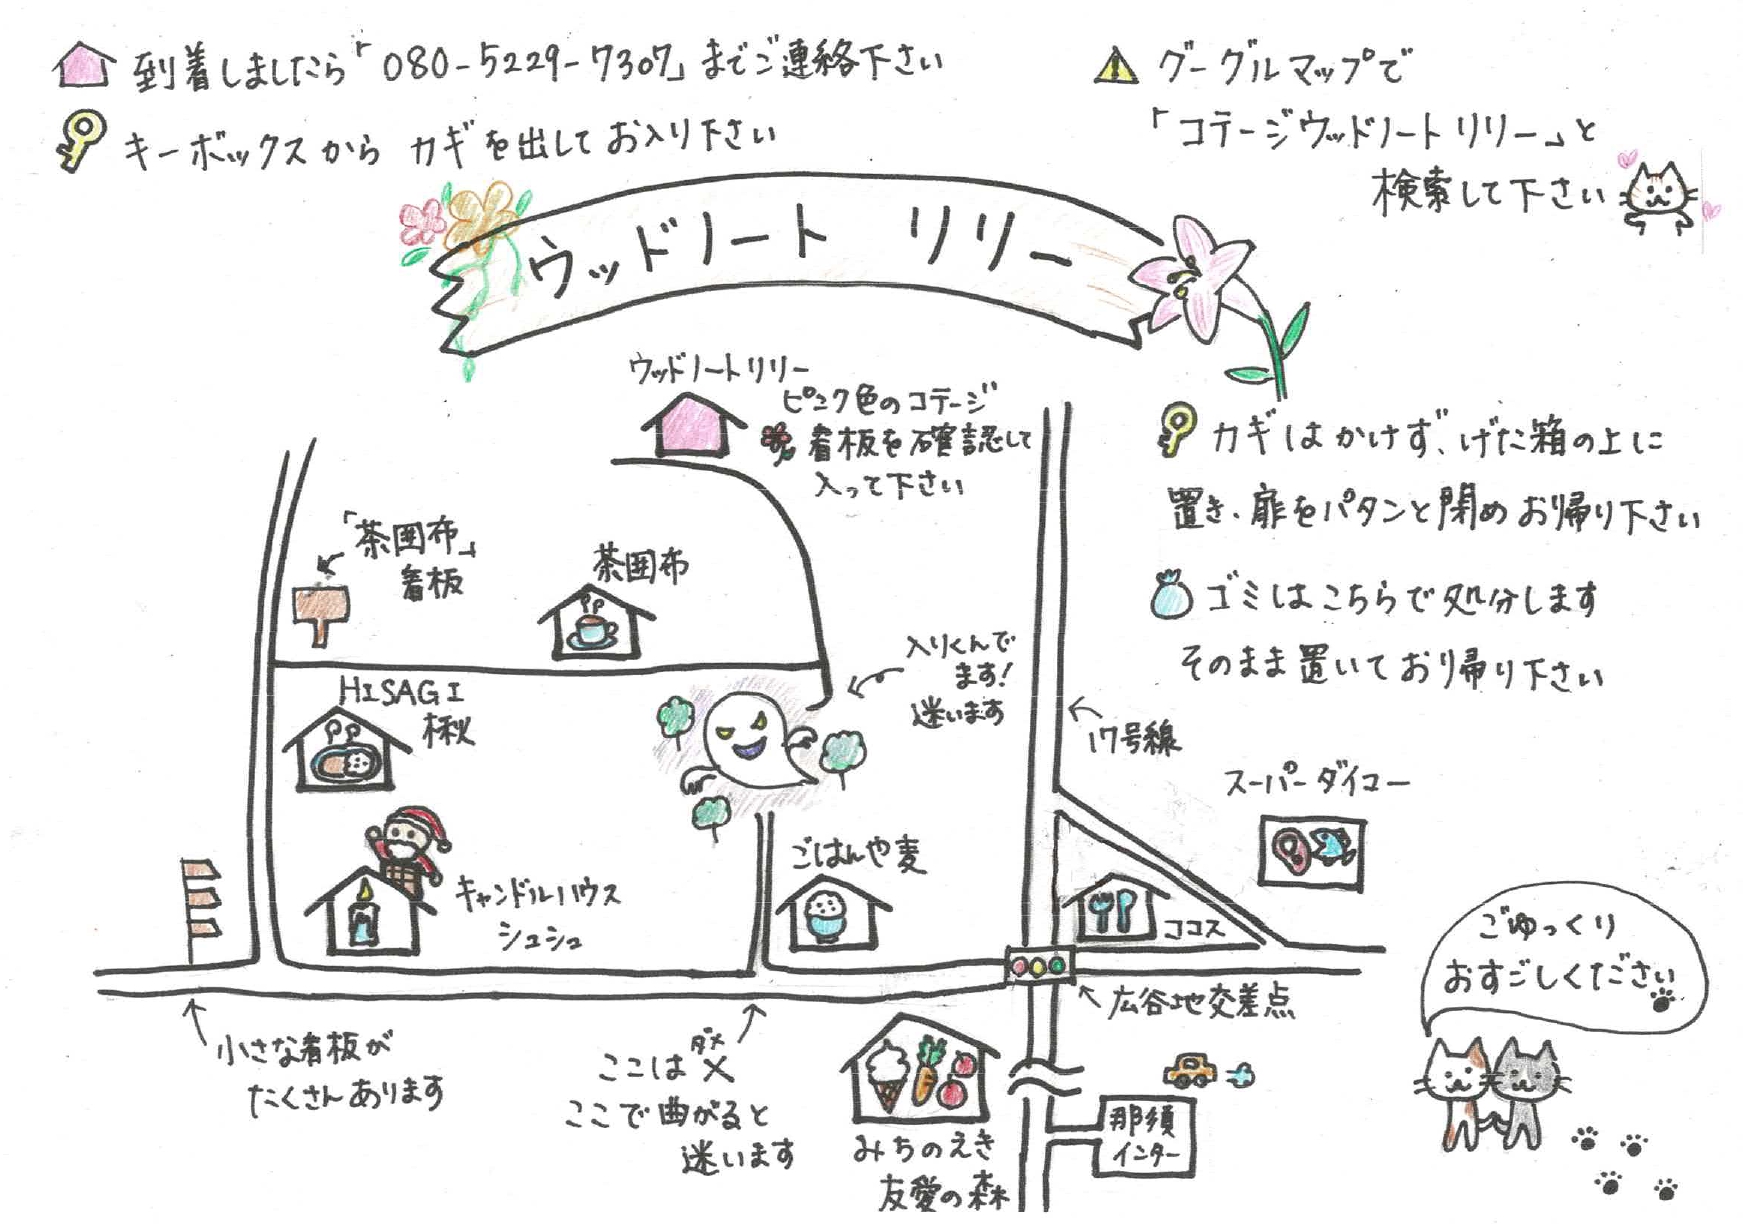 到着しましたら「080-5229-7307」までご連絡下さい
キーボックスから カギを出してお入り下さい
グーグルマップで
「コテージウッドノートリリー」と
検索して下さい
ウッドノート リリー
ウッドノートリリー
ピンク色のコテージ
看板を確認して
入って下さい
カギはかけず、げた箱の上に
置き、扉をパタンと閉めお帰り下さい
ゴミはこちらで処分します
そのまま置いてお帰り下さい
「茶囲布」
看板
茶囲布
入りくんで
ます!
迷います
HISAGI
楸
17号線
スーパーダイユー
ごはんや麦
キャンドルハウス
シュシュ
ココス
ごゆっくり
おすごしください
広谷地交差点
小さな看板が
たくさんあります
ダメ
ここは×
ここで曲がると
迷います
みちのえき
友愛の森
那須
インター